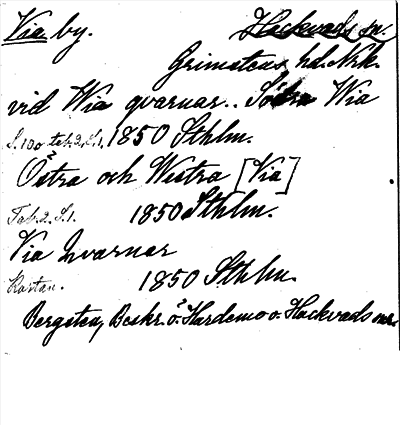 Via by. Hackvads sn.
Grimstens hd. Nrk.
vid Wia qvarnar.. Södra Wia
S. 100 tab. 2. S. 1. 1850 Sthlm.
Östra och Westra [Via]
Tab. 2. S. 1. 1850 Sthlm.
Via Qvarnar
Kartan. 1850 Sthlm.
Bergsten, Beskr. ö. Hardemo o. Hackvads snr.